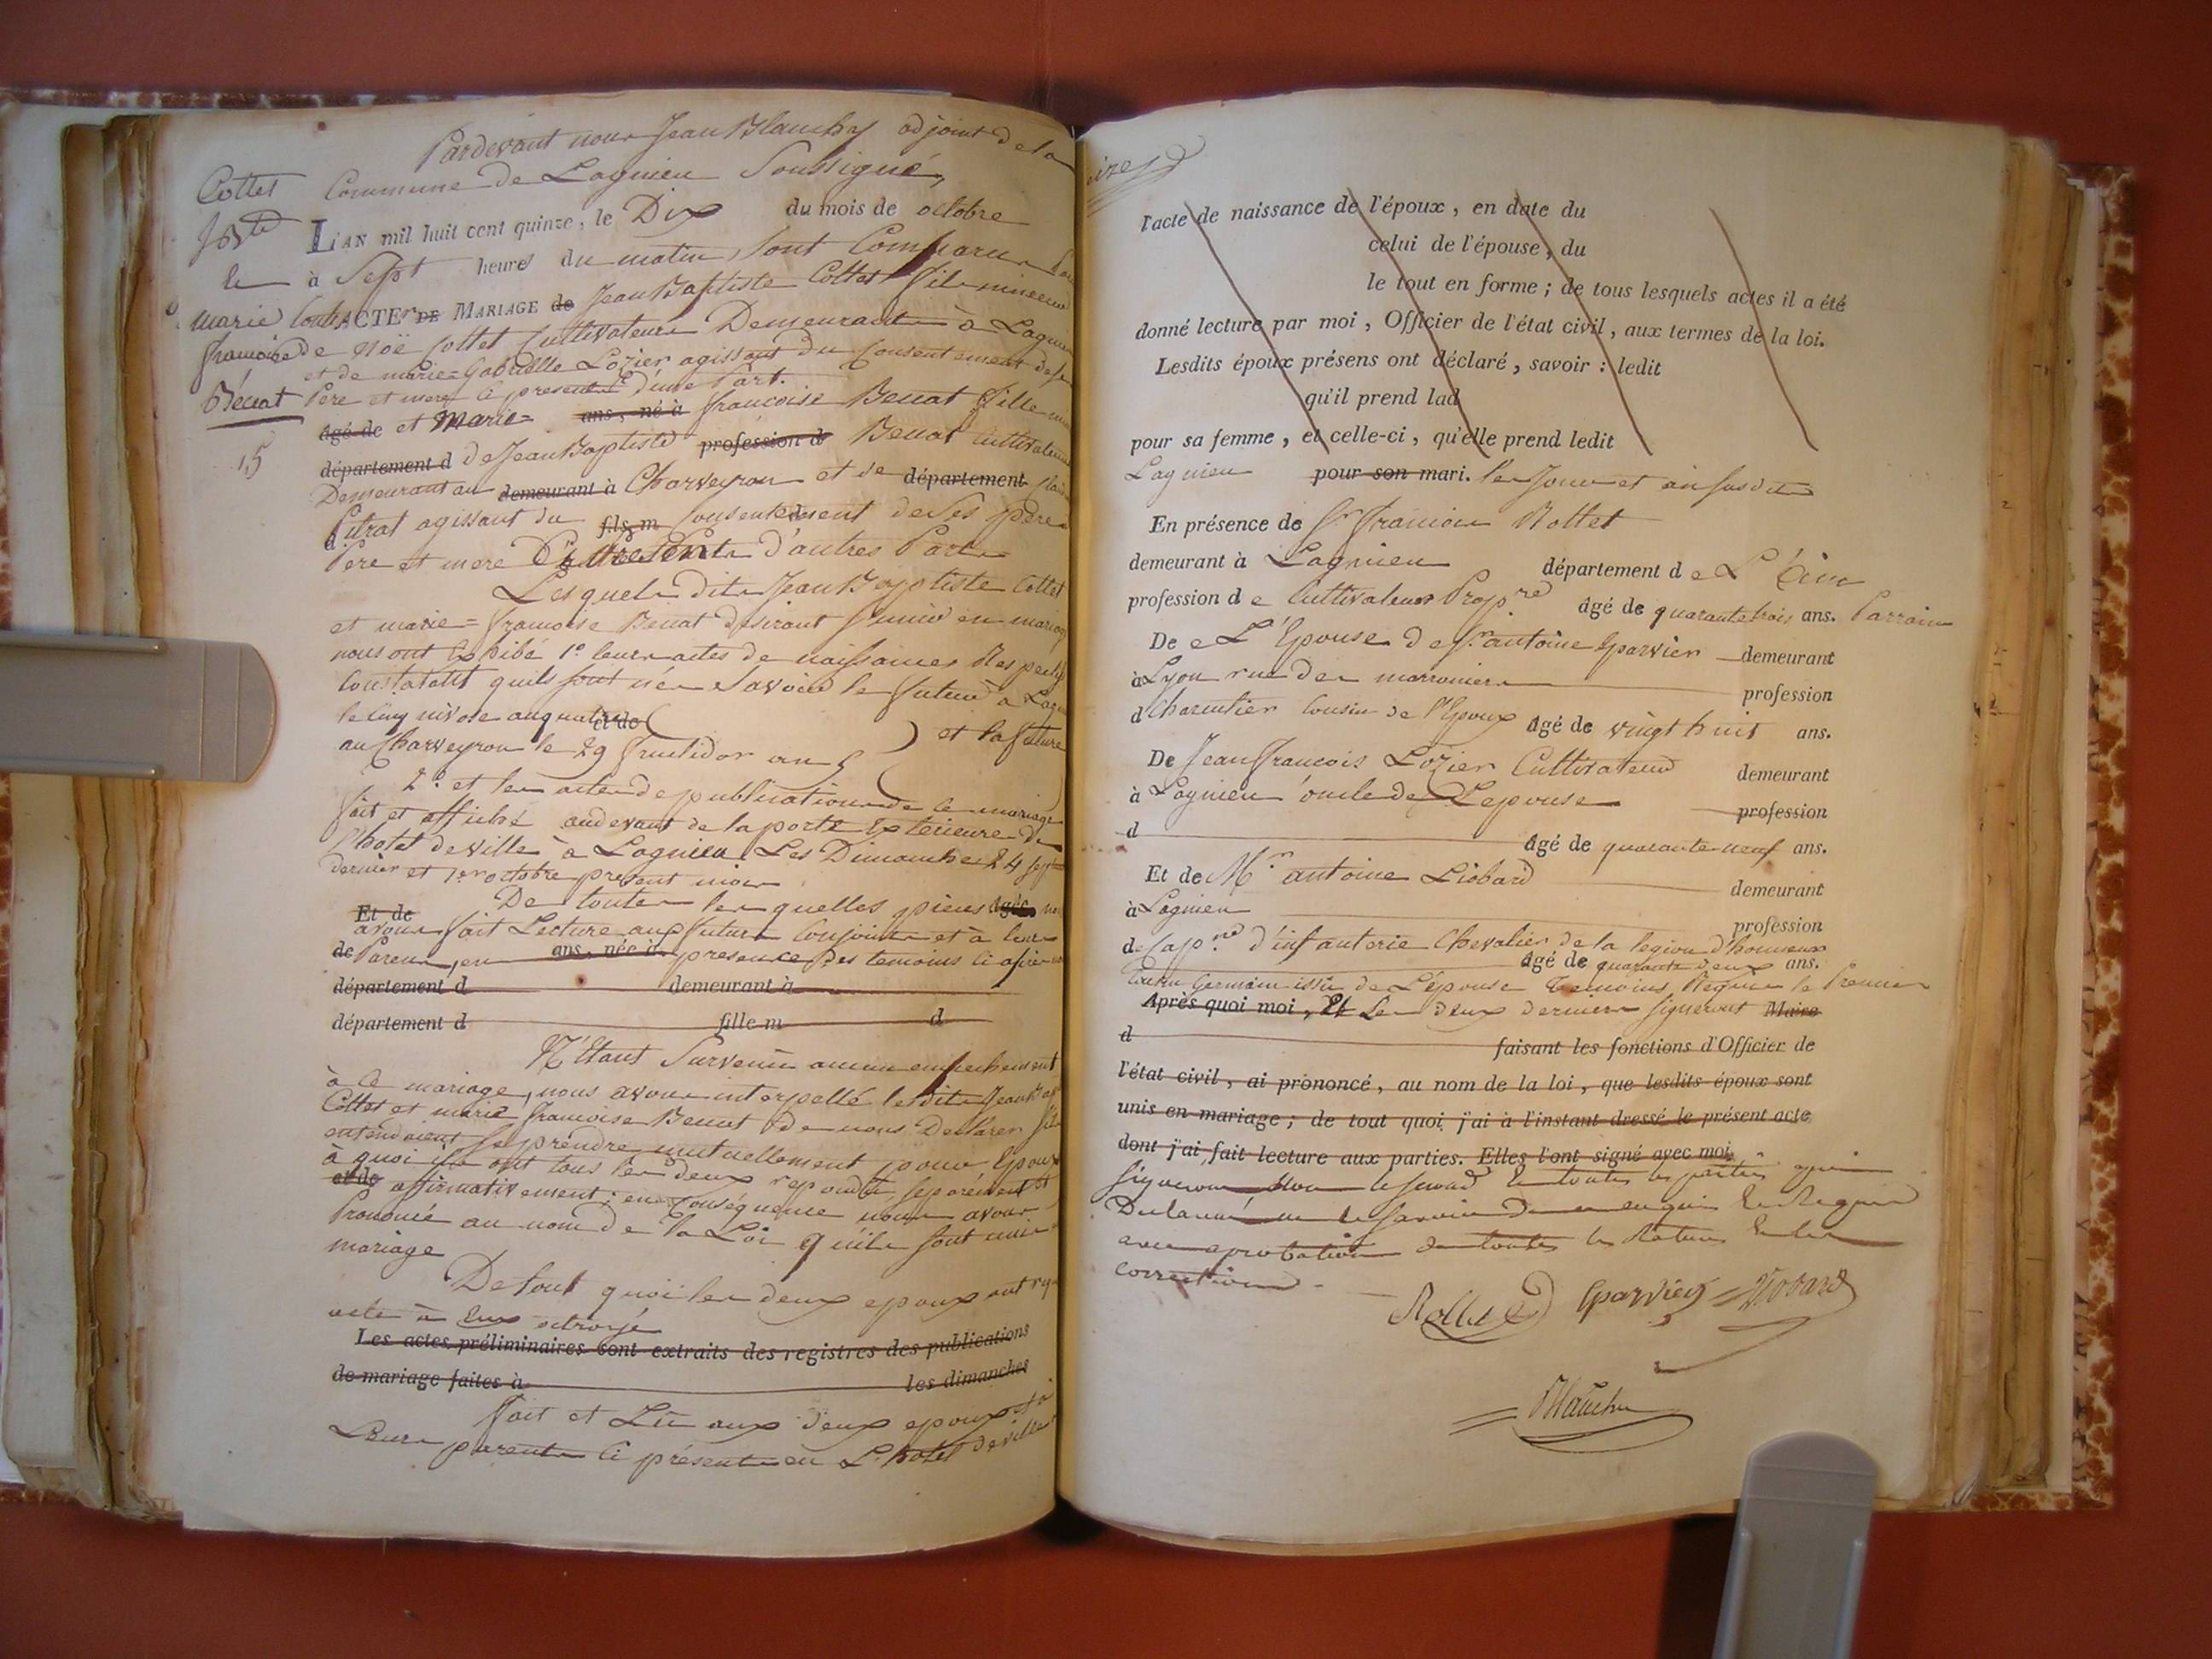 Pardevant nous Jean Blanchy adjoint de la
Commune de Lagnieu Soussigné,
Cottet
J Bte
L'AN mil huit cent quinze, le Dix du mois de octobre
à Sept heures du matin, sont Comparus
Marie
françoise
Bénat
15
ACTE DE MARIAGE de Jean Baptiste Cottet fils mineur
de Noë Cottet Cultivateur Demeurant à Lagnieu
et de marie=Gabrielle Lozier agissant du Consentement de ses
Pere et mere Ci presents d'une Part.
Agé de et Marie= ans, né à francoise Benat fille
département d de Jean Baptiste profession d Benat Cultivateur
Demeurant au demeurant à Charveyron et de département
Pitrat agissant du fils m Consentement de ses père
Pere et mere d'autres Part
Lesquels dits Jean Baptiste Cottet
et marie=francoise Benat desirant s'unir en mariage
nous ont Exhibé 1° leurs actes de naissances Respectifs
Constatant quils sont nés Savoir le futur à
le Cinq nivose an quatre et de
et la future
au Charveyron le 29 fructidor an 5
2° et les actes de publications de ce mariage
fait et affiché audevant de la porte Exterieure de
l'hotel de ville à Lagnieu Les Dimanches 24 sept
dernier et 1er octobre present mois
De toutes les quelles pieces Agée
Et de
avons fait Lecture aux futurs Conjoints et à leurs
de Parens, en ans, née à presence Des temoins Ci après
département d demeurant à
département d fille m d
N'Etant Survenu aucun empechement
à ce mariage, nous avons interpellé lesdits Jean Bap
Cottet et marie francoise Benat de nous Declarer s'ils
entendoient se prendre mutuellement pour Epoux
à quoi ils ont tous les deux repondu separément
et de affirmativement; en Conséquence nous avons
Prononcé au nom de la Loi qu'ils sont unis
mariage
De tout quoi les deux epoux ont
acte à Eux octroyé
Les actes préliminaires sont extraits des registres des publications
de mariage faites à les dimanches
fait et Lu aux deux epoux et à
Leurs parents Ci présents en L'hotel de ville
l'acte de naissance de l'époux, en date du
celui de l'épouse, du
le tout en forme; de tous lesquels actes il a été
donné lecture par moi, Officier de l'état civil, aux termes de la loi.
Lesdits époux présens ont déclaré, savoir : ledit
qu'il prend lad
pour sa femme, et celle-ci, qu'elle prend ledit
Lagnieu pour son mari. les Jour et an susdits
En présence de Sr francois Rottet
demeurant à Lagnieu département d e L'Ain
profession d e Cultivateur Propre âgé de quarante trois ans. Parrain
De e L'Epouse de Sr antoine Eparvier demeurant
à Lyon rue des marroniers profession
d Charentier Cousin de l'Epoux âgé de vingt huit ans.
De Jean francois Lozier Cultivateur demeurant
à Lagnieu oncle de L'epouse profession
d âgé de quarante-neuf ans.
Et de Mr antoine Liobard demeurant
à Lagnieu profession
de Capne d'infanterie Chevalier de la legion d'honneur
âgé de quarante deux ans.
Cousin Germain issu de L'épouse Temoins Requis le Premier
Après quoi moi, Et Les deux derniers signeront Maire
d faisant les fonctions d'Officier de
l'état civil, ai prononcé, au nom de la loi, que lesdits époux sont
unis en mariage; de tout quoi j'ai à l'instant dressé le présent acte
dont j'ai fait lecture aux parties. Elles l'ont signé avec moi.
signeront non le second Et toutes les parties
Declaré ne le savoir de ce enquis Et Requis
avec aprobation de toutes les Ratures Et les
corrections
Eparvier Liobard
Blanchy